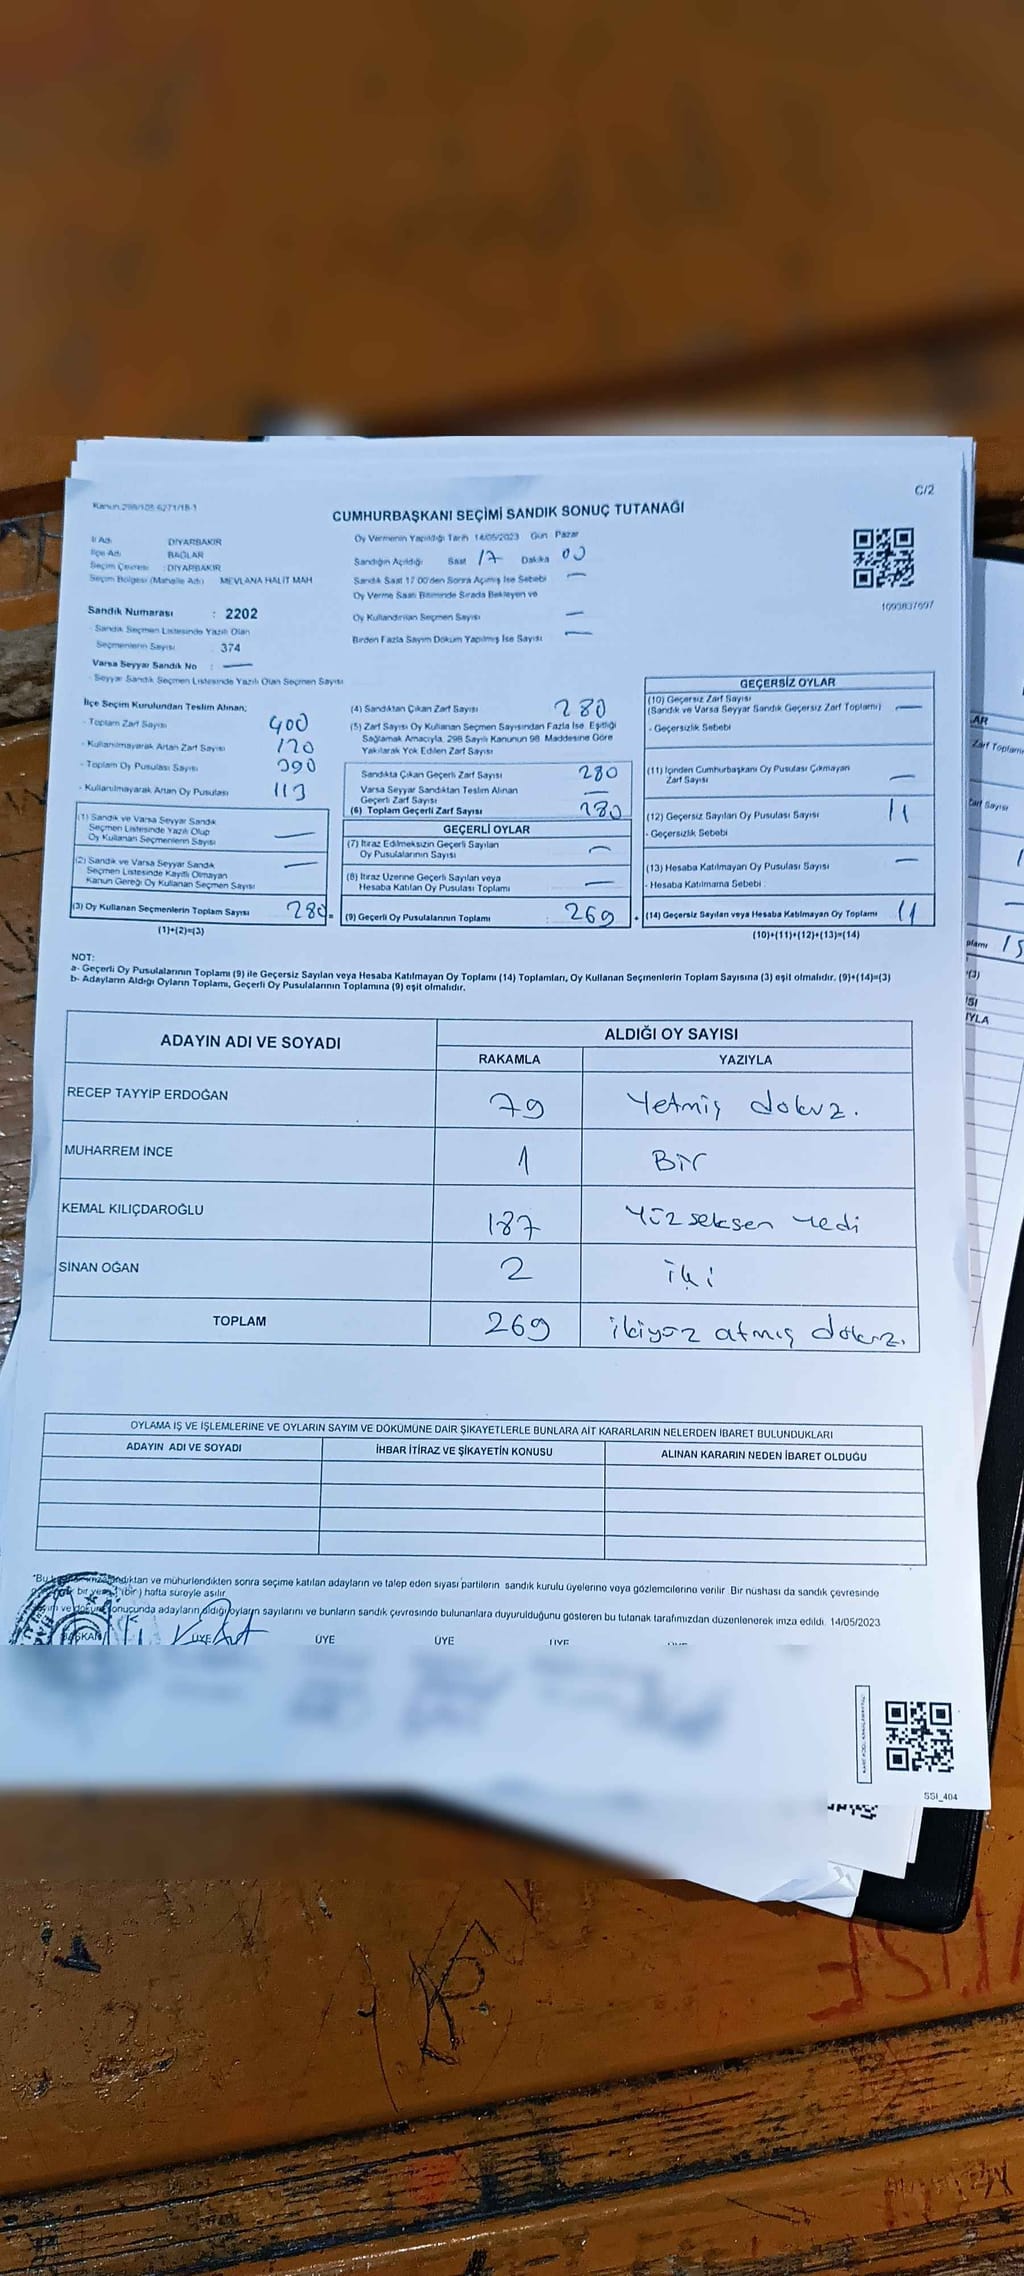 C/2
Kanun:298/105-6271/18-1
CUMHURBAŞKANI SEÇİMİ SANDIK SONUÇ TUTANAĞI
İl Adı DİYARBAKIR
İlçe Adı BAĞLAR
Seçim Çevresi : DİYARBAKIR
Seçim Bölgesi (Mahalle Adı) MEVLANA HALİT MAH
Sandık Numarası : 2202
- Sandık Seçmen Listesinde Yazılı Olan
Seçmenlerin Sayısı 374
Varsa Seyyar Sandık No : —
- Seyyar Sandık Seçmen Listesinde Yazılı Olan Seçmen Sayısı
Oy Vermenin Yapıldığı Tarih 14/05/2023 Gün Pazar
Sandığın Açıldığı Saat 17 Dakika 00
Sandık Saat 17.00'den Sonra Açılmış İse Sebebi —
Oy Verme Saati Bitiminde Sırada Bekleyen ve
Oy Kullandırılan Seçmen Sayısı —
Birden Fazla Sayım Döküm Yapılmış İse Sayısı —
1093837697
İlçe Seçim Kurulundan Teslim Alınan;
- Toplam Zarf Sayısı 400
- Kullanılmayarak Artan Zarf Sayısı 120
- Toplam Oy Pusulası Sayısı 390
- Kullanılmayarak Artan Oy Pusulası 113
(1) Sandık ve Varsa Seyyar Sandık
Seçmen Listesinde Yazılı Olup
Oy Kullanan Seçmenlerin Sayısı —
(2) Sandık ve Varsa Seyyar Sandık
Seçmen Listesinde Kayıtlı Olmayan
Kanun Gereği Oy Kullanan Seçmen Sayısı —
(3) Oy Kullanan Seçmenlerin Toplam Sayısı 280
(1)+(2)=(3)
(4) Sandıktan Çıkan Zarf Sayısı 280
(5) Zarf Sayısı Oy Kullanan Seçmen Sayısından Fazla İse, Eşitliği
Sağlamak Amacıyla, 298 Sayılı Kanunun 98. Maddesine Göre
Yakılarak Yok Edilen Zarf Sayısı
Sandıkta Çıkan Geçerli Zarf Sayısı 280
Varsa Seyyar Sandıktan Teslim Alınan
Geçerli Zarf Sayısı —
(6) Toplam Geçerli Zarf Sayısı 280
GEÇERLİ OYLAR
(7) İtiraz Edilmeksizin Geçerli Sayılan
Oy Pusulalarının Sayısı —
(8) İtiraz Üzerine Geçerli Sayılan veya
Hesaba Katılan Oy Pusulası Toplamı —
(9) Geçerli Oy Pusulalarının Toplamı : 269
GEÇERSİZ OYLAR
(10) Geçersiz Zarf Sayısı
(Sandık ve Varsa Seyyar Sandık Geçersiz Zarf Toplamı) —
- Geçersizlik Sebebi
(11) İçinden Cumhurbaşkanı Oy Pusulası Çıkmayan
Zarf Sayısı —
(12) Geçersiz Sayılan Oy Pusulası Sayısı 11
- Geçersizlik Sebebi
(13) Hesaba Katılmayan Oy Pusulası Sayısı —
- Hesaba Katılmama Sebebi :
(14) Geçersiz Sayılan veya Hesaba Katılmayan Oy Toplamı 11
(10)+(11)+(12)+(13)=(14)
NOT:
a- Geçerli Oy Pusulalarının Toplamı (9) ile Geçersiz Sayılan veya Hesaba Katılmayan Oy Toplamı (14) Toplamları, Oy Kullanan Seçmenlerin Toplam Sayısına (3) eşit olmalıdır. (9)+(14)=(3)
b- Adayların Aldığı Oyların Toplamı, Geçerli Oy Pusulalarının Toplamına (9) eşit olmalıdır.
ADAYIN ADI VE SOYADI ALDIĞI OY SAYISI
RAKAMLA YAZIYLA
RECEP TAYYİP ERDOĞAN 79 Yetmiş dokuz.
MUHARREM İNCE 1 Bir
KEMAL KILIÇDAROĞLU 187 Yüz seksen yedi
SİNAN OĞAN 2 iki
TOPLAM 269 ikiyüz atmış dokuz.
OYLAMA İŞ VE İŞLEMLERİNE VE OYLARIN SAYIM VE DÖKÜMÜNE DAİR ŞİKAYETLERLE BUNLARA AİT KARARLARIN NELERDEN İBARET BULUNDUKLARI
ADAYIN ADI VE SOYADI İHBAR İTİRAZ VE ŞİKAYETİN KONUSU ALINAN KARARIN NEDEN İBARET OLDUĞU
"Bu imzalandıktan ve mühürlendikten sonra seçime katılan adayların ve talep eden siyasi partilerin sandık kurulu üyelerine veya gözlemcilerine verilir. Bir nüshası da sandık çevresinde
bir yere 1 (bir) hafta süreyle asılır.
ve döküm sonucunda adayların aldığı oyların sayılarını ve bunların sandık çevresinde bulunanlara duyurulduğunu gösteren bu tutanak tarafımızdan düzenlenerek imza edildi. 14/05/2023
BAŞKAN ÜYE ÜYE ÜYE ÜYE
SSI_404
AR
Zarf Toplamı
Zarf Sayısı
(3)